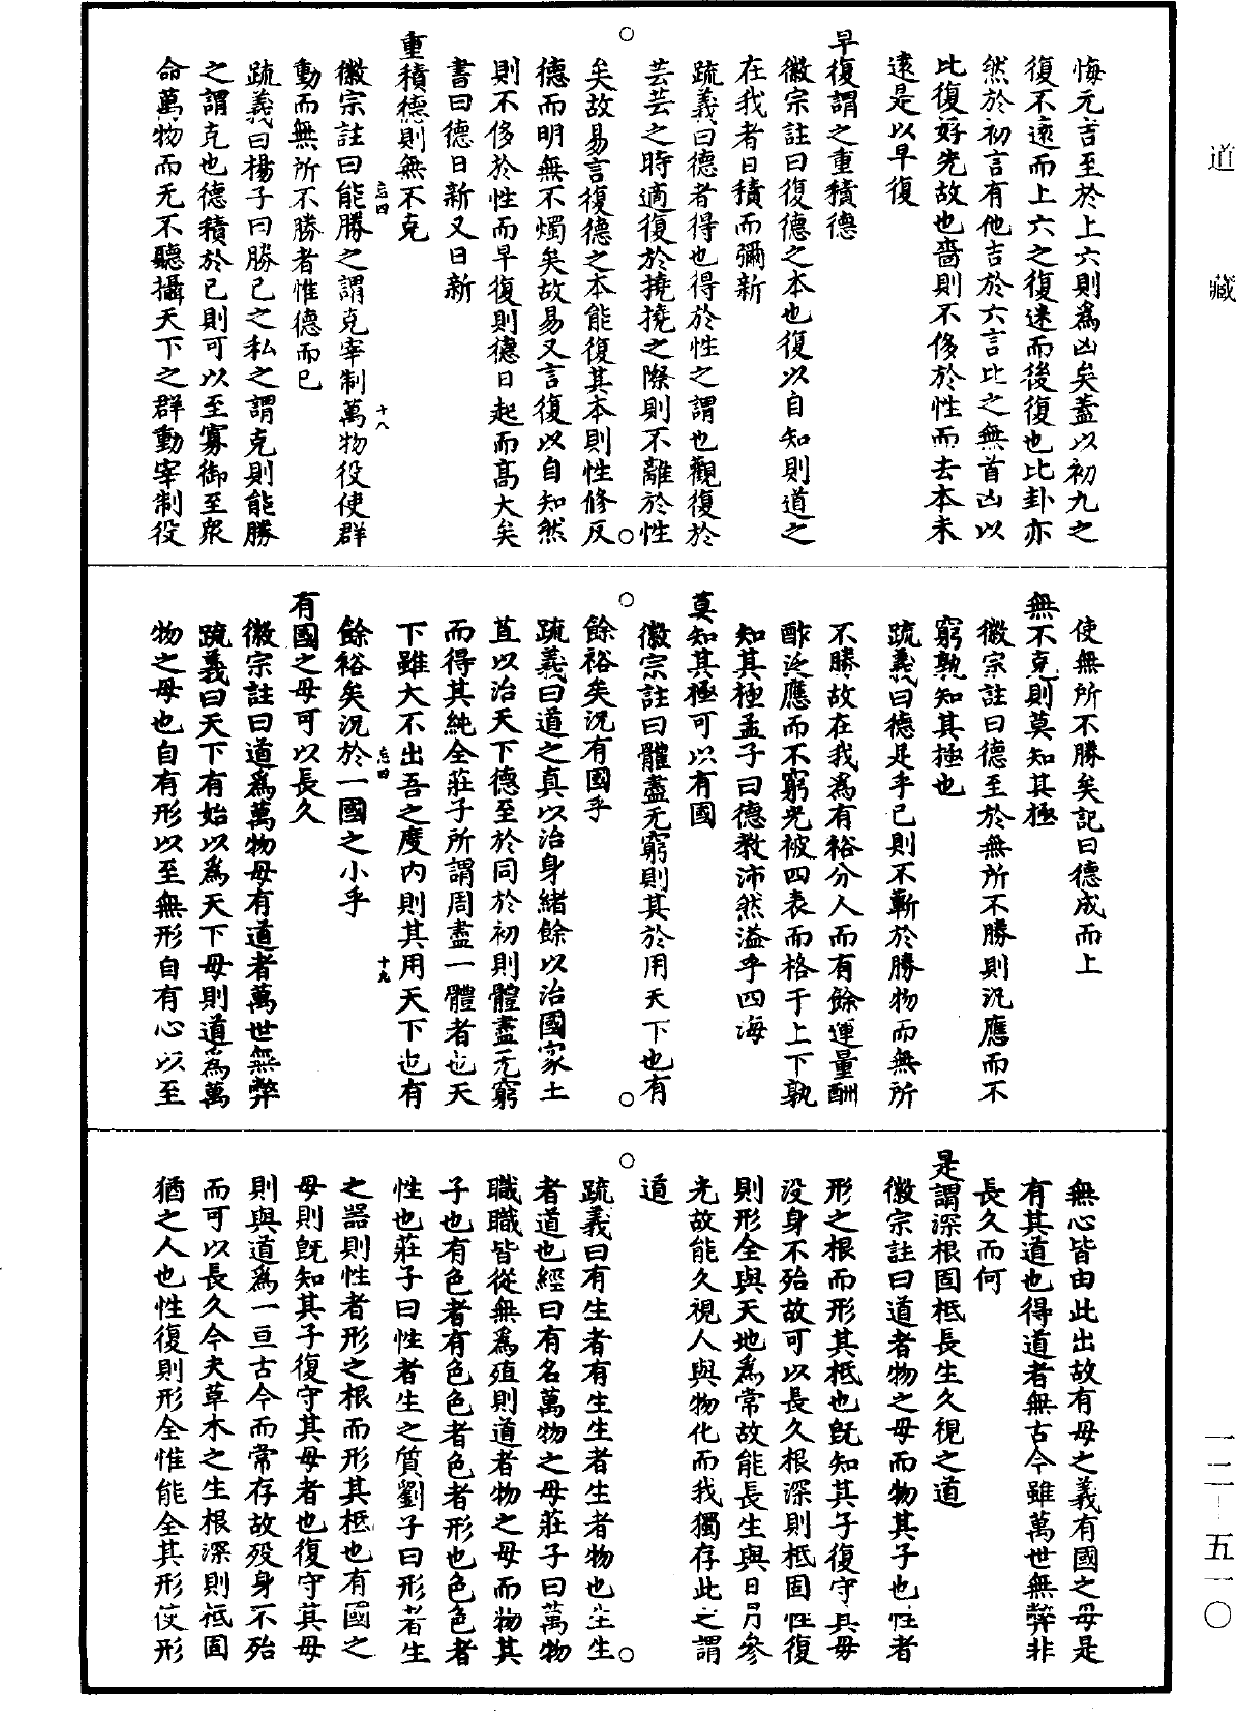 道藏
悔元吉至於上六則爲凶矣蓋以初九之
復不遠而上六之復迷而後復也比卦亦
然於初言有他吉於六言比之無首凶以
比復好先故也嗇則不侈於性而去本未
遠是以早復
早復謂之重積德
徽宗註曰復德之本也復以自知則道之
在我者日積而彌新
疏義曰德者得也得於性之謂也觀復於
芸芸之時適復於撓撓之際則不離於性
矣故易言復德之本能復其本則性修反
德而明無不燭矣故易又言復以自知然
則不侈於性而早復則德日起而高大矣
書曰德日新又日新
重積德則無不克
忘四
十八
徽宗註曰能勝之謂克宰制萬物役使群
動而無所不勝者惟德而已
疏義曰楊子曰勝己之私之謂克則能勝
之謂克也德積於己則可以至寡御至衆
命萬物而无不聽攝天下之群動宰制役
使無所不勝矣記曰德成而上
無不克則莫知其極
徽宗註曰德至於無所不勝則汎應而不
窮孰知其極也
疏義曰德足乎已則不蘄於勝物而無所
不勝故在我爲有裕分人而有餘運量酬
酢泛應而不窮光被四表而格于上下孰
知其極孟子曰德教沛然溢乎四海
莫知其極可以有國
徽宗註曰體盡无窮則其於用天下也有
餘裕矣況有國乎
疏義曰道之真以治身緒餘以治國家土
苴以治天下德至於同於初則體盡无窮
而得其純全莊子所謂周盡一體者也天
下雖大不出吾之度內則其用天下也有
忘四
十九
餘裕矣況於一國之小乎
有國之母可以長久
徽宗註曰道爲萬物母有道者萬世無弊
疏義曰天下有始以爲天下母則道爲萬
物之母也自有形以至無形自有心以至
無心皆由此出故有母之義有國之母是
有其道也得道者無古今雖萬世無弊非
長久而何
是謂深根固柢長生久視之道
徽宗註曰道者物之母而物其子也性者
形之根而形其柢也既知其子復守其母
没身不殆故可以長久根深則柢固性復
則形全與天地爲常故能長生與日月參
光故能久視人與物化而我獨存此之謂
道
疏義曰有生者有生生者生者物也生生
者道也經曰有名萬物之母莊子曰萬物
職職皆從無爲殖則道者物之母而物其
子也有色者有色色者色者形也色色者
性也莊子曰性者生之質劉子曰形者生
之器則性者形之根而形其柢也有國之
母則既知其子復守其母者也復守其母
則與道爲一亘古今而常存故歿身不殆
而可以長久今夫草木之生根深則柢固
猶之人也性復則形全惟能全其形使形
一二—五一〇